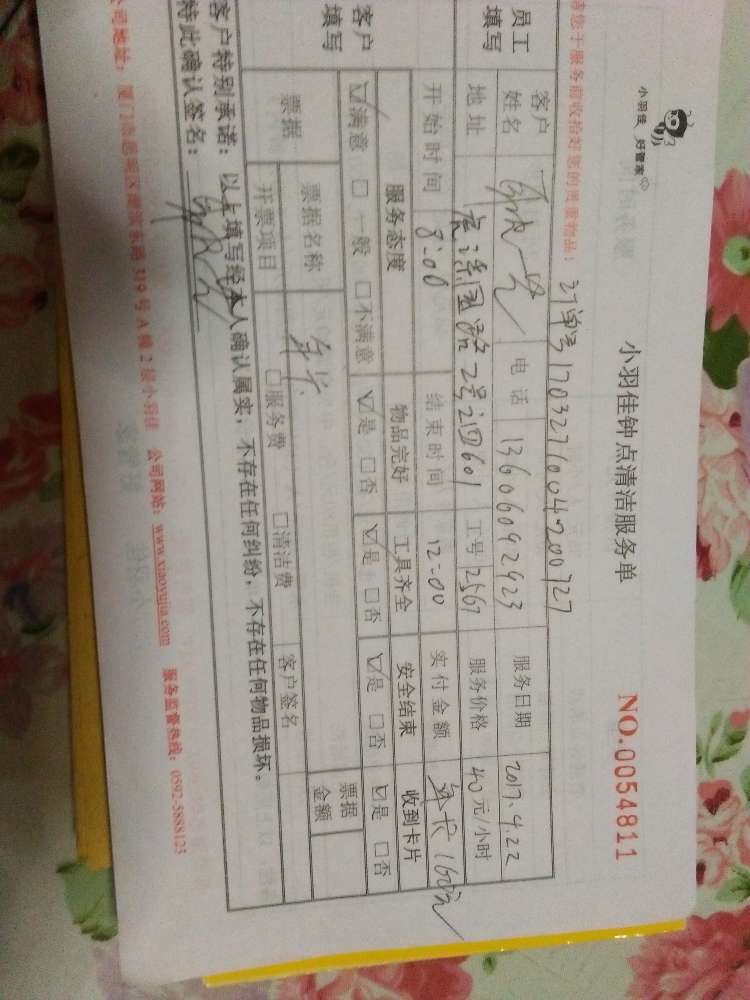 小羽佳 好管家
小羽佳钟点清洁服务单
NO.0054811
请您于服务前收拾好您的贵重物品!
订单号1703271004200727
员工填写
客户姓名 电话 13606092923 服务日期 2017.4.22
地址 2号之四601 工号 2567 服务价格 40元/小时
开始时间 8:00 结束时间 12:00 实付金额 年卡160元
客户填写
服务态度 物品完好 工具齐全 安全结束 收到卡片
☑满意 □一般 □不满意 ☑是 □否 ☑是 □否 ☑是 □否 ☑是 □否
票据 票据名称 年卡 票据金额
开票项目 □服务费 □清洁费 客户签名
客户特别承诺:以上填写经本人确认属实,不存在任何纠纷,不存在任何物品损坏。
特此确认签名:
公司地址:厦门市思明区 319号A幢2层小羽佳 公司网站:www.xiaoyujia.com 服务监督热线:0592-5888123